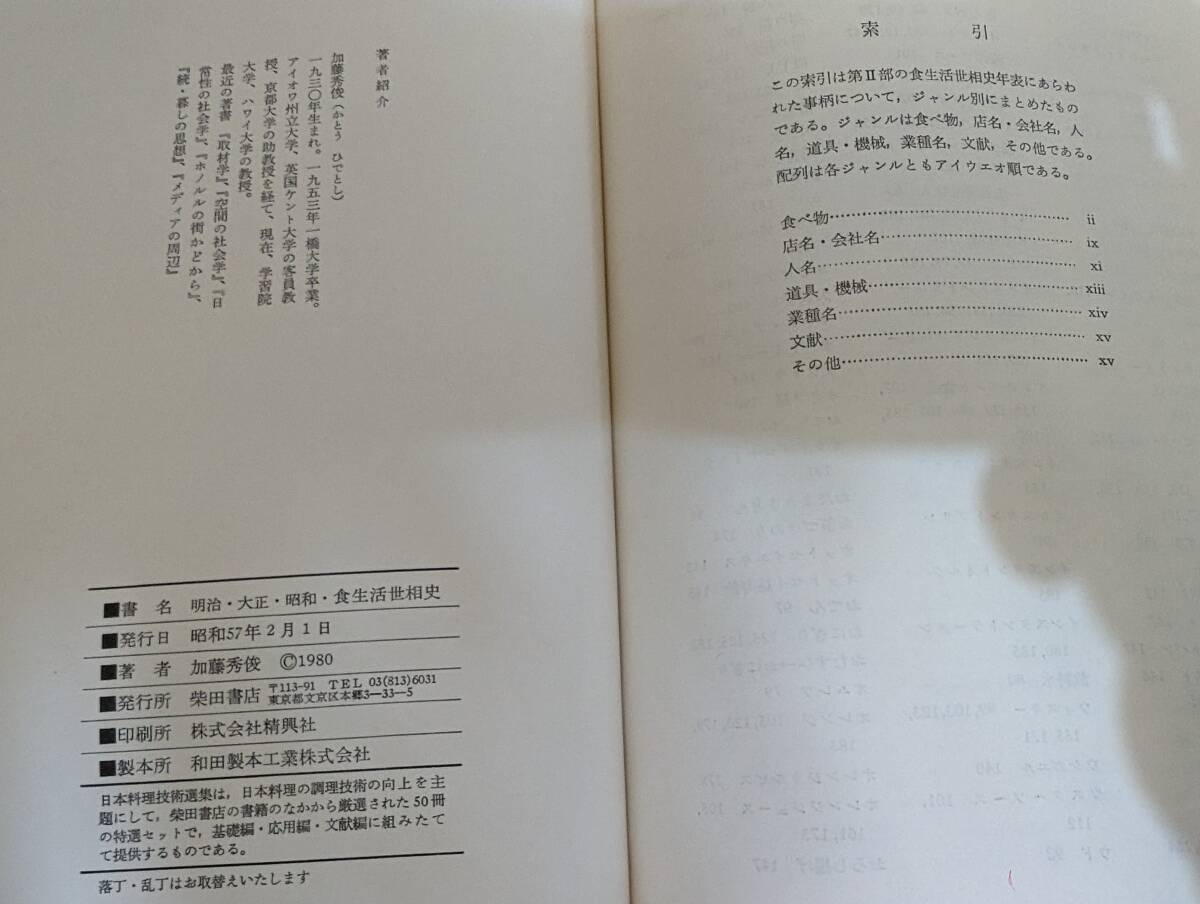 著者紹介
加藤秀俊（かとう　ひでとし）
一九三〇年生まれ。一九五三年一橋大学卒業。
アイオワ州立大学、英国ケント大学の客員教
授、京都大学の助教授を経て、現在、学習院
大学、ハワイ大学の教授。
最近の著書　『取材学』、『空間の社会学』、『日
常性の社会学』、『ホノルルの街かどから』、
『続・暮しの思想』、『メディアの周辺』
■書　名　明治・大正・昭和・食生活世相史
■発行日　昭和57年2月1日
■著　者　加藤秀俊　©1980
■発行所　柴田書店　〒113-91　TEL 03(813)6031
東京都文京区本郷3—33—5
■印刷所　株式会社精興社
■製本所　和田製本工業株式会社
日本料理技術選集は，日本料理の調理技術の向上を主
題にして，柴田書店の書籍のなかから厳選された50冊
の特選セットで，基礎編・応用編・文献編に組みたて
て提供するものである。
落丁・乱丁はお取替えいたします
索　引
この索引は第Ⅱ部の食生活世相史年表にあらわ
れた事柄について，ジャンル別にまとめたもの
である。ジャンルは食べ物，店名・会社名，人
名，道具・機械，業種名，文献，その他である。
配列は各ジャンルともアイウエオ順である。
食べ物…………………………………… ii
店名・会社名…………………………… ix
人名……………………………………… xi
道具・機械……………………………… xiii
業種名…………………………………… xiv
文献……………………………………… xv
その他…………………………………… xv